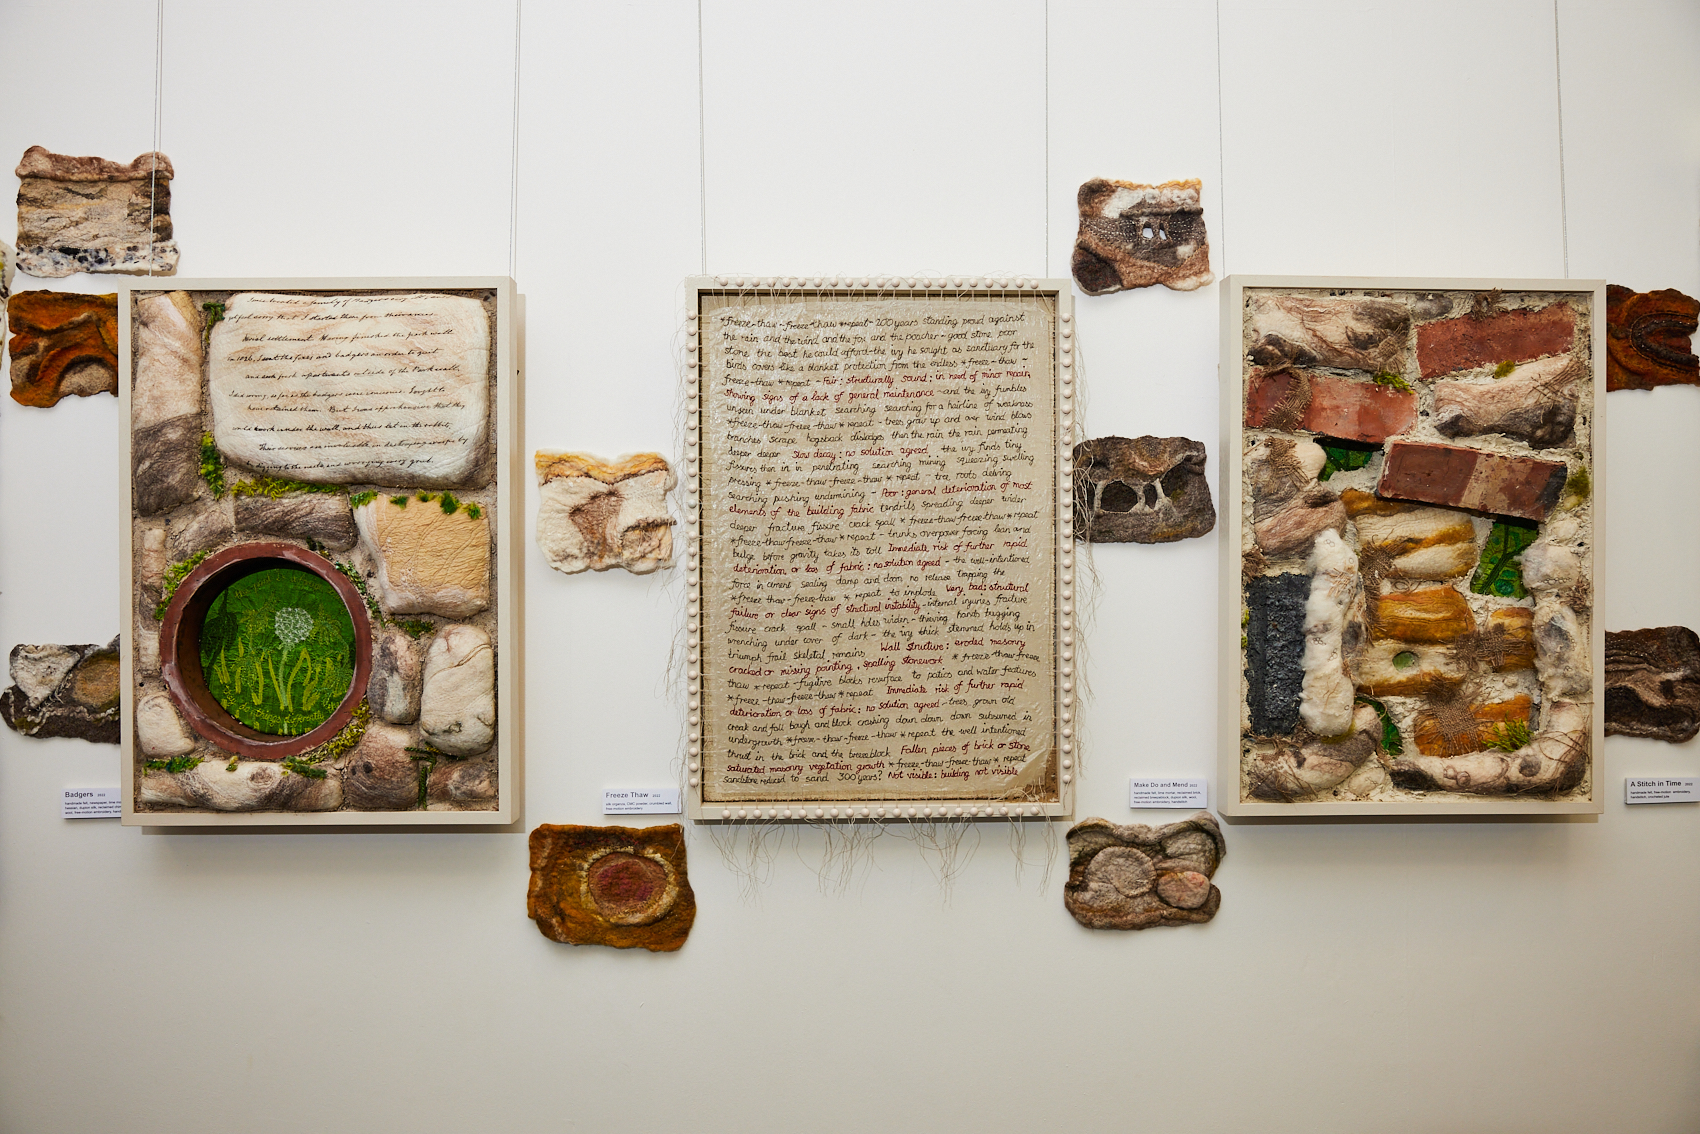 Some located a family of Badgers
sorry that I disturbed them for
Having finished the park wall
in 1826, I sent the foxes and badgers an order to quit
and seek fresh apartments outside of the Park wall.
I was sorry, as far as the badgers were concerned. I ought to
have retained them. But I was apprehensive that they
would work under the wall, and thus let in the rabbits.
Their are invaluable in destroying wasps by
digging up the nests and worrying every grub.
*freeze-thaw-freeze-thaw*repeat- 200 years standing proud against
the rain and the wind and the fox and the poacher - good stone poor
stone the best he could afford - the ivy he sought as sanctuary for the
birds covers like a blanket protection from the endless *freeze-thaw-
freeze-thaw*repeat - Fair: structurally sound; in need of minor repair;
showing signs of a lack of general maintenance - and the ivy fumbles
unseen under blanket searching searching for a hairline of weakness
*freeze-thaw-freeze-thaw*repeat - trees grow up and over wind blows
branches scrape hogsback dislodges then the rain the rain permeating
deeper deeper Slow decay; no solution agreed, the ivy finds tiny
fissures then in in penetrating searching mining squeezing swelling
pressing *freeze-thaw-freeze-thaw*repeat - tree roots delving
searching pushing undermining - Poor: general deterioration of most
elements of the building fabric tendrils spreading deeper wider
deeper fracture fissure crack spall *freeze-thaw freeze-thaw*repeat
*freeze-thaw freeze-thaw*repeat - trunks overpower forcing lean and
bulge before gravity takes its toll Immediate risk of further rapid
deterioration or loss of fabric; no solution agreed - the well-intentioned
force in cement sealing damp and doom no release trapping the
*freeze thaw-freeze-thaw*repeat to implode Very bad: structural
failure or clear signs of structural instability - internal injuries fracture
fissure crack spall - small holes widen - thieving hands tugging
wrenching under cover of dark - the ivy thick stemmed holds up in
triumph frail skeletal remains Wall structure: eroded masonry
cracked or missing pointing, spalling stonework *freeze-thaw freeze
thaw*repeat - fugitive blocks resurface to patios and water features
*freeze-thaw-freeze-thaw*repeat Immediate risk of further rapid
deterioration or loss of fabric; no solution agreed - trees grown old
creak and fall bough and block crashing down down down subsumed in
undergrowth *freeze-thaw-freeze-thaw*repeat the well intentioned
thrust in the brick and the breezeblock Fallen pieces of brick or stone
saturated masonry vegetation growth *freeze-thaw freeze-thaw*repeat
sandstone reduced to sand 300 years? Not visible: building not visible
Badgers 2023
Freeze Thaw 2022
silk organza, CMC powder, crumbled wall,
free-motion embroidery
Make Do and Mend 2023
handmade felt, lime mortar, reclaimed brick,
reclaimed breezeblock, dupion silk, wool,
free-motion embroidery, handstitch
A Stitch in Time 2022
handmade felt, free-motion embroidery,